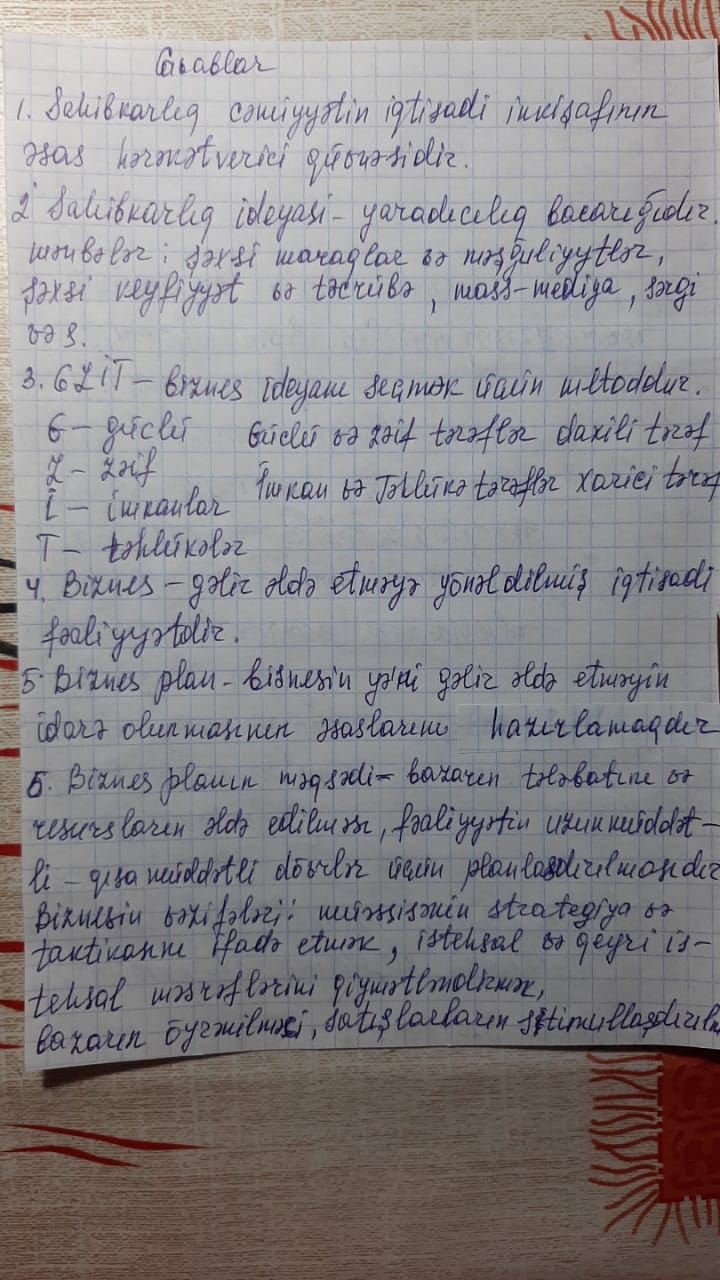 Cavablar
1. Sahibkarlıq cəmiyyətin iqtisadi inkişafının
əsas hərəkətverici qüvvəsidir.
2 Sahibkarlıq ideyası - yaradıcılıq bacarığıdır.
mənbələr: şəxsi maraqlar və məşğuliyytlər,
şəxsi keyfiyyət və təcrübə, mass-mediya, sərgi
və s.
3. GZİT - biznes ideyanı seçmək üçün metoddur.
G - güclü Güclü və zəif tərəflər daxili tərəf
Z - zəif
İmkan və Təhlükə tərəflər xarici tərəf
İ - imkanlar
T - təhlükələr
4. Biznes - gəlir əldə etməyə yönəldilmiş iqtisadi
fəaliyyətdir.
5 Biznes plan - biznesin yə'ni gəlir əldə etməyin
idarə olunmasının əsaslarını hazırlamaqdır
6. Biznes planın məqsədi - bazarın tələbatını və
resursların əldə edilməsi, fəaliyyətin uzunmüddət-
li - qısa müddətli dövrlər üçün planlaşdırılmasıdır
Biznesin vəzifələri: müəssisənin strategiya və
taktikasını ifadə etmək, istehsal və qeyri is-
tehsal məsrəflərini qiymətləndirmək,
bazarın öyrənilməsi, satışların stimullaşdırılm